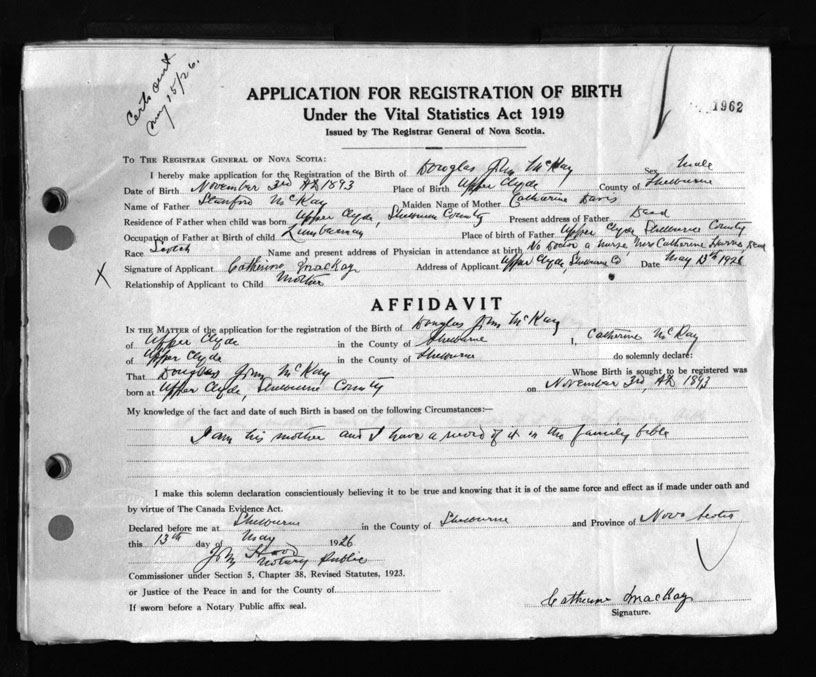 Certs sent
May 15/26.
1962
APPLICATION FOR REGISTRATION OF BIRTH
Under the Vital Statistics Act 1919
Issued by The Registrar General of Nova Scotia.
TO THE REGISTRAR GENERAL OF NOVA SCOTIA:
I hereby make application for the Registration of the Birth of Douglas John McKay Sex Male
Date of Birth November 3rd AD 1893 Place of Birth Upper Clyde County of Shelburne
Name of Father Stanford McKay Maiden Name of Mother Catharine Davis
Residence of Father when child was born Upper Clyde, Shelburne County Present address of Father Dead
Occupation of Father at Birth of child Lumberman Place of birth of Father Upper Clyde Shelburne County
Race Scotch Name and present address of Physician in attendance at birth No Doctor a Nurse, Mrs Catherine Dead
Signature of Applicant Catherine MacKay Address of Applicant Upper Clyde, Shelburne Co Date May 13th 1926
Relationship of Applicant to Child Mother
AFFIDAVIT
IN THE MATTER of the application for the registration of the Birth of Douglas John McKay
of Upper Clyde in the County of Shelburne I, Catherine McKay
of Upper Clyde in the County of Shelburne do solemnly declare:
That Douglas John McKay Whose Birth is sought to be registered was
born at Upper Clyde, Shelburne County on November 3rd, AD 1893
My knowledge of the fact and date of such Birth is based on the following Circumstances:—
I am his mother and I have a record of it in the family bible
I make this solemn declaration conscientiously believing it to be true and knowing that it is of the same force and effect as if made under oath and
by virtue of The Canada Evidence Act.
Declared before me at Shelburne in the County of Shelburne and Province of Nova Scotia
this 13th day of May 1926
Hood
Notary Public
Commissioner under Section 5, Chapter 38, Revised Statutes, 1923.
or Justice of the Peace in and for the County of
If sworn before a Notary Public affix seal.
Catherine MacKay
Signature.